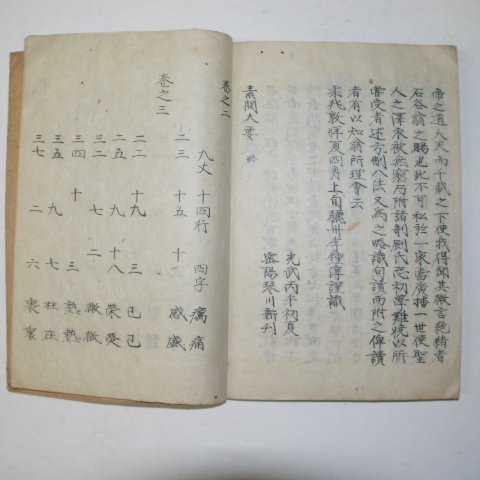 帝之道大天而千載之下使我得聞其微言絶緖者
石谷翁之賜也此不可私於一家當廣播一世使聖
人之澤永被無窮乃附諸剞劂氏恐初學難曉以所
嘗受者述方例八法又爲之略識句讀而附之俾讀
者有以知翁所理會云
柔兆敦牂夏四月上旬驪州李鍾淳謹識
光武丙午初夏
密陽琴川新刊
素問大要 終
卷之二
九丈 十四行 四字 癘 痛
二三 十五 十 感 盛
卷之三
二二 十九 三 已 己
二五 九 十八 榮
三二 七 二 微 微
三四 十 三 塾 熟
三五 九 七 枉 在
三七 二 六 裏 裏